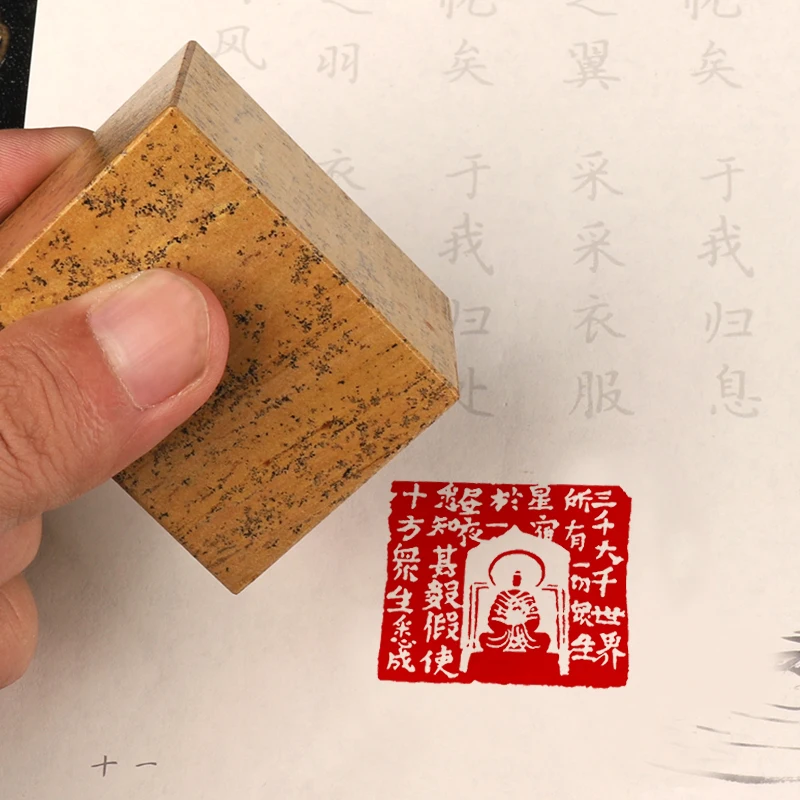 忧矣 于我归息
之翼 采采衣服
忧矣 于我归处
之羽 衣
风
三千大千世界
所有一切眾生
星宿
於一
昼夜
悉知其數假使
十方眾生悉成
十一